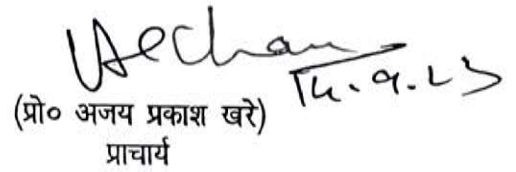 14.9.23
(प्रो० अजय प्रकाश खरे)
प्राचार्य